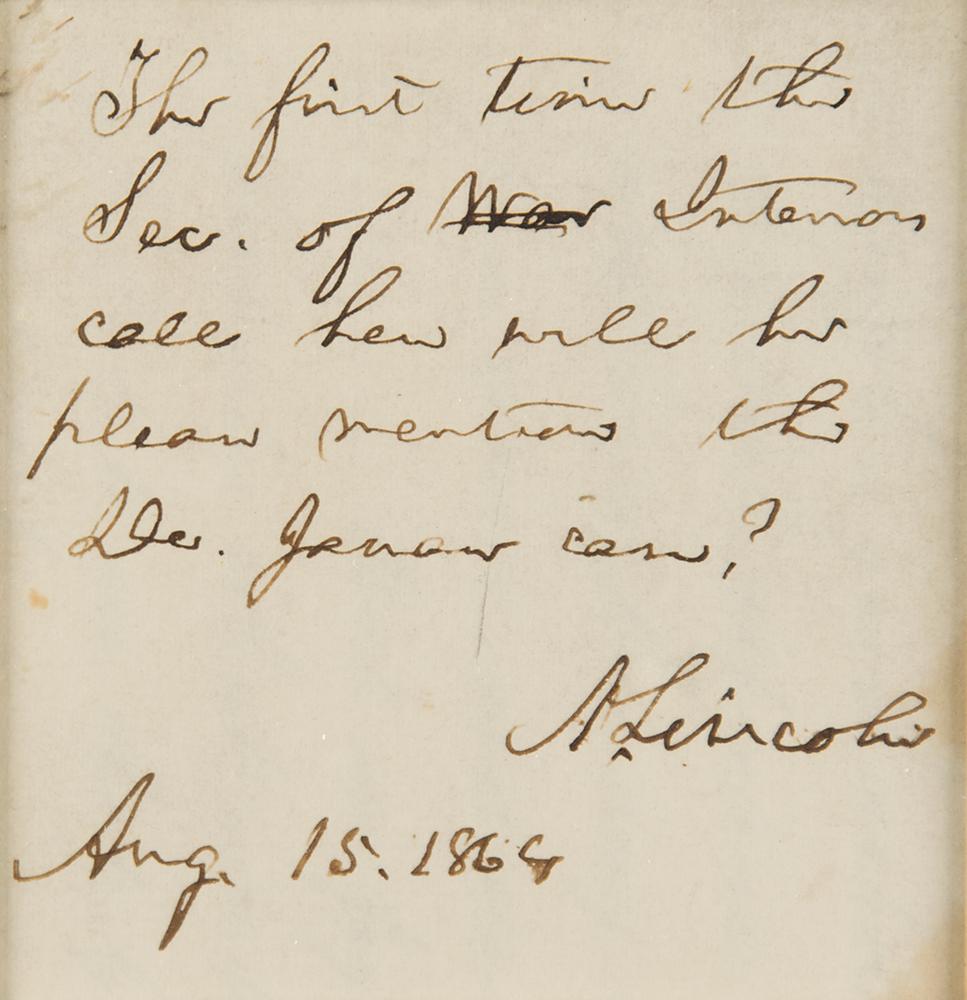 The first time the
Sec. of War Interior
calls here will he
please mention the
Dr. case?
A. Lincoln
Aug. 15. 1864